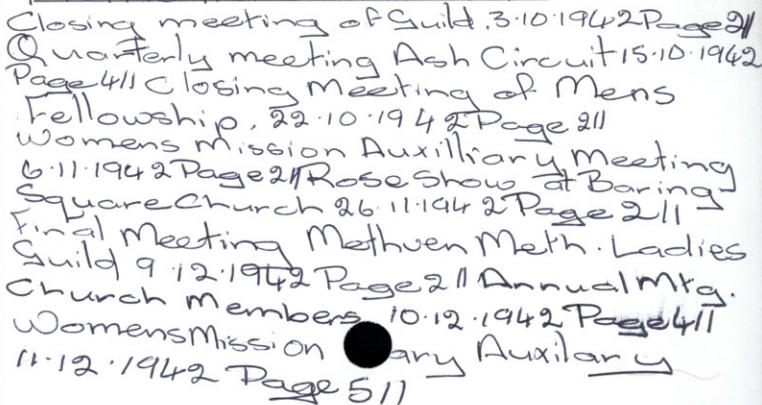 Closing meeting of Guild. 3.10.1942 Page 2//
Quarterly meeting Ash Circuit 15.10.1942
Page 4// Closing Meeting of Mens
Fellowship. 22.10.1942 Page 2//
Womens Mission Auxilliary Meeting
6.11.1942 Page 2// Rose Show at Baring
Square Church 26.11.1942 Page 2//
Final Meeting Methven Meth. Ladies
Guild 9.12.1942 Page 2// Annual Mtg.
Church Members 10.12.1942 Page 4//
Womens Mission ary Auxilary
11.12.1942 Page 5//